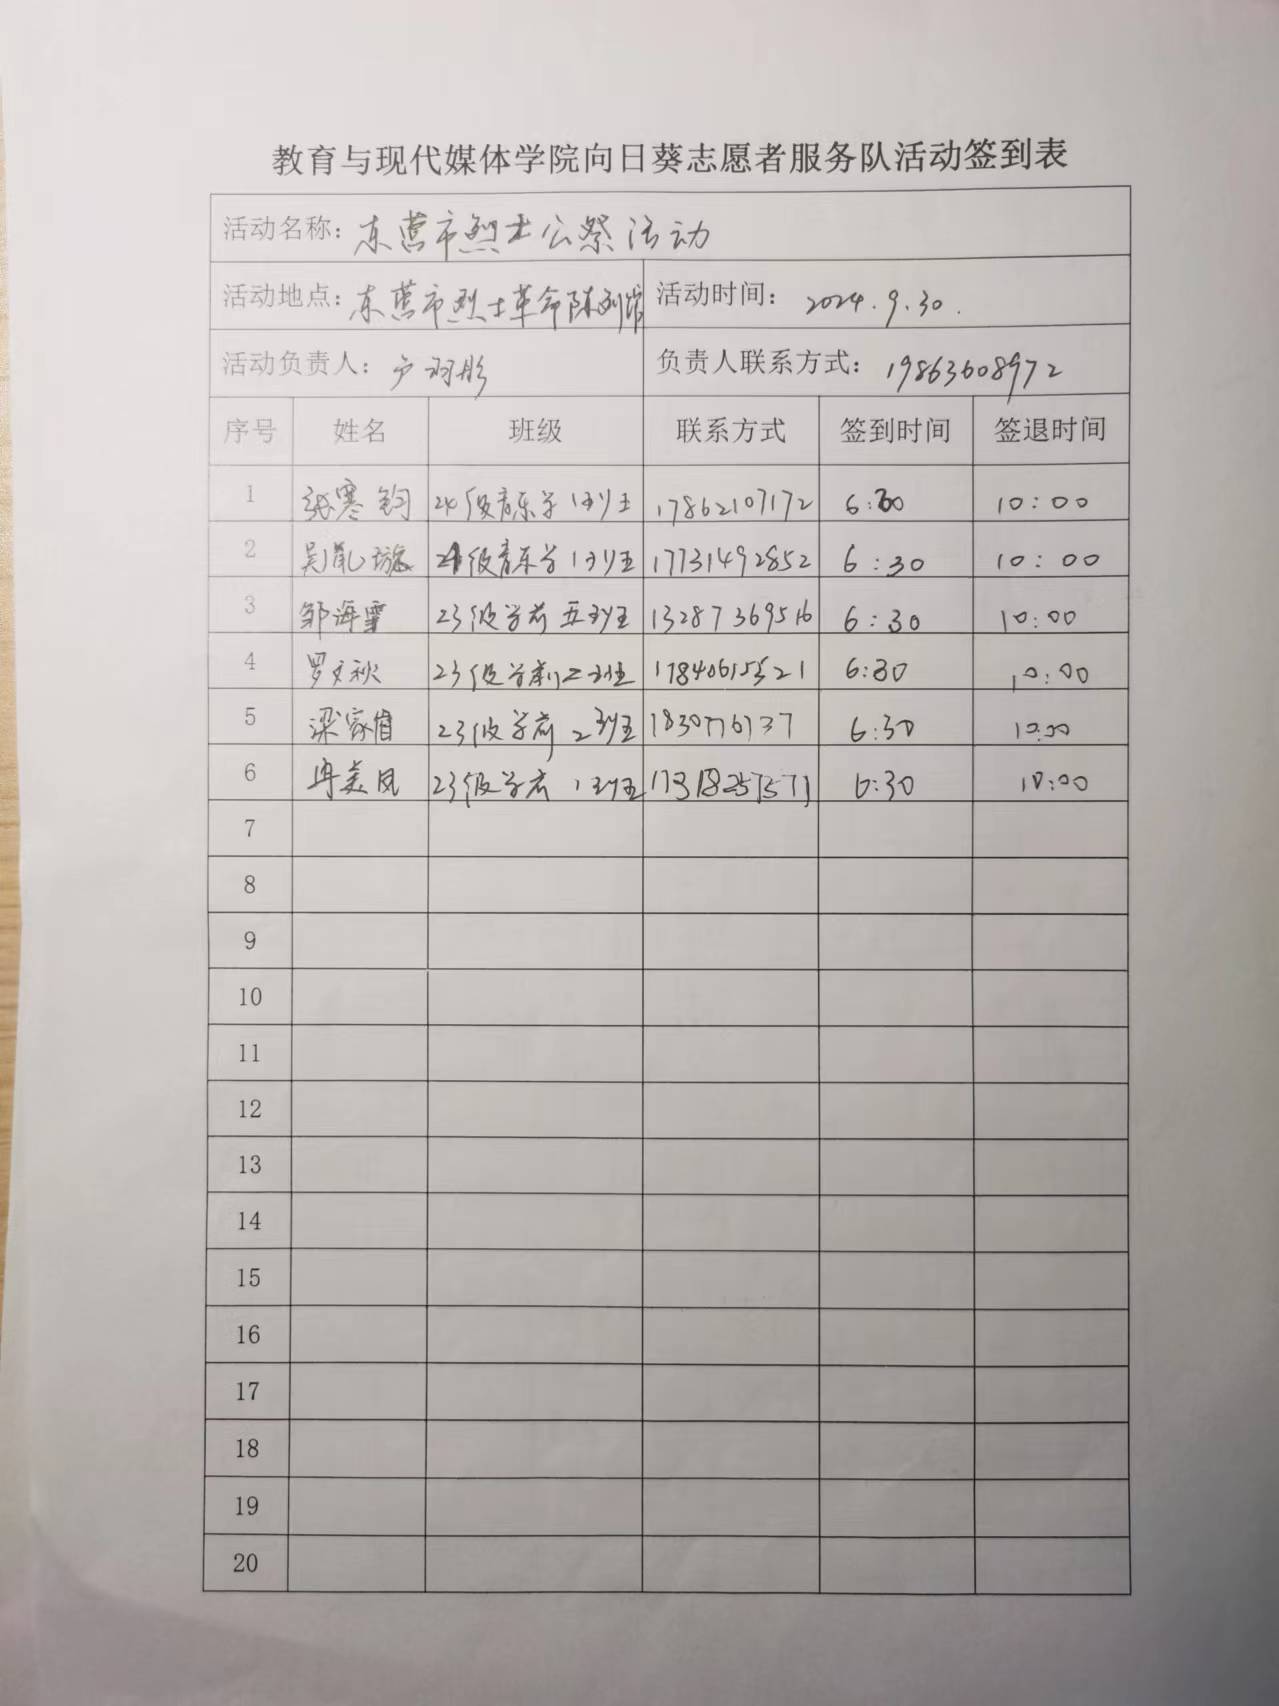 教育与现代媒体学院向日葵志愿者服务队活动签到表
活动名称：东营市烈士公祭活动
活动地点：东营市烈士革命陈列馆 活动时间：2024.9.30.
活动负责人：卢羽彤 负责人联系方式：19863608972
序号 姓名 班级 联系方式 签到时间 签退时间
1 张寒钧 24级音乐学1班 17862107172 6:30 10:00
2 吴凯璇 24级音乐学1班 17731492852 6:30 10:00
3 邹海雪 23级学前五班 13287369516 6:30 10:00
4 罗文秋 23级学前二班 17840615521 6:30 10:00
5 梁家 23级学前2班 1830776737 6:30 10:00
6 冉美凤 23级学前1班 17318257571 6:30 10:00
7
8
9
10
11
12
13
14
15
16
17
18
19
20